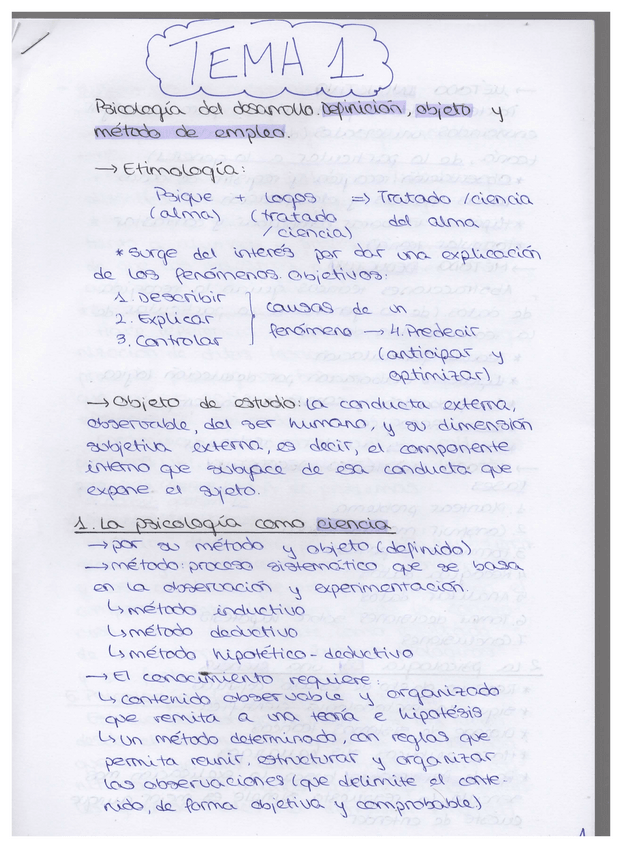 TEMA 1
Psicología del desarrollo. Definición, objeto y
método de empleo.
→ Etimología:
Psique + Logos ⇒ Tratado / ciencia
(alma) (tratado del alma
/ ciencia)
* surge del interés por dar una explicación
de los fenómenos. Objetivos:
1. Describir
2. Explicar
3. Controlar
causas de un
fenómeno → 4. Predecir
(anticipar y
optimizar)
→ Objeto de estudio: la conducta externa,
observable, del ser humano, y su dimensión
subjetiva externa, es decir, el componente
interno que subyace de esa conducta que
expone el sujeto.
1. La psicología como ciencia
→ por su método y objeto (definido)
→ método: proceso sistemático que se basa
en la observación y experimentación.
↳ método inductivo
↳ método deductivo
↳ método hipotético - deductivo
→ El conocimiento requiere:
↳ contenido observable y organizado
que remita a una teoría e hipótesis
↳ Un método determinado, con reglas que
permita reunir, estructurar y organizar
las observaciones (que delimite el conte-
nido, de forma objetiva y comprobable)